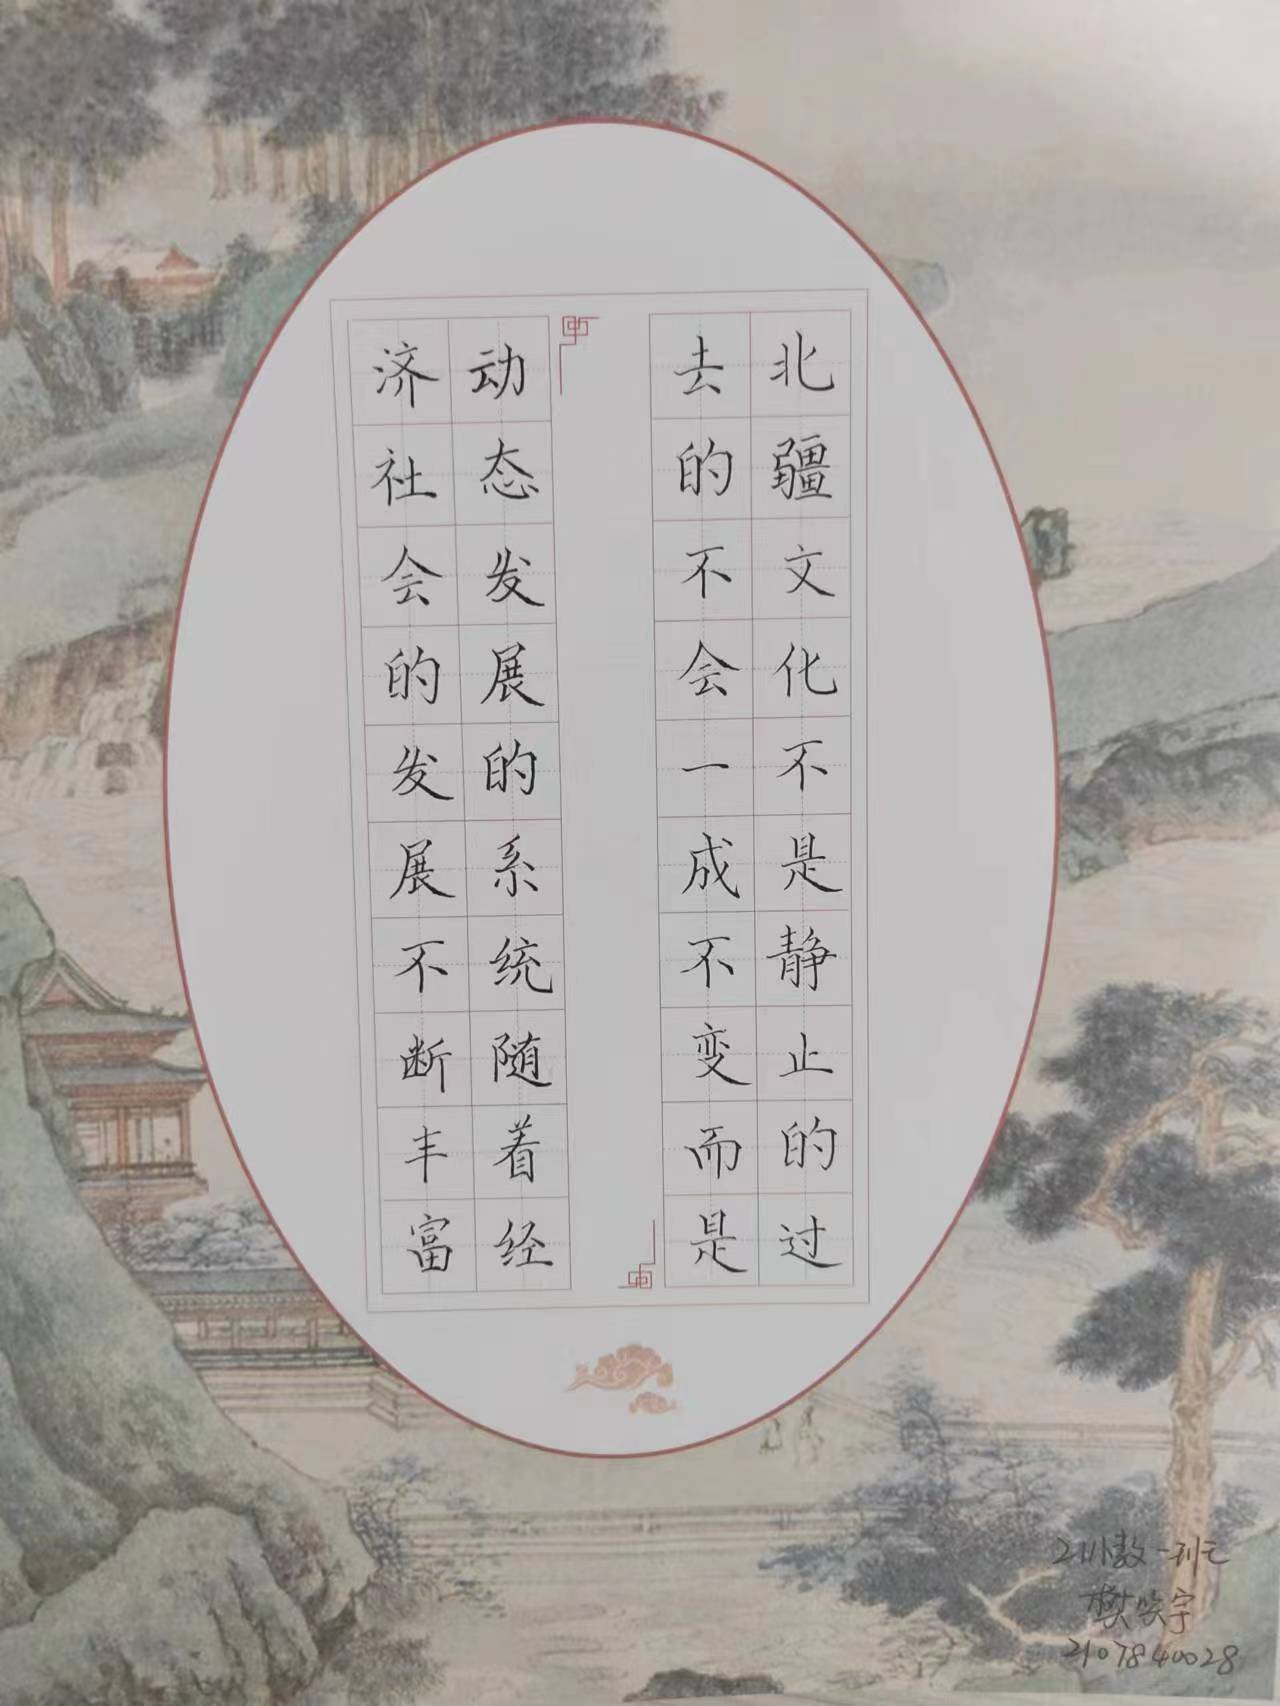 北疆文化不是静止的过
去的不会一成不变而是
动态发展的系统随着经
济社会的发展不断丰富
2107840028